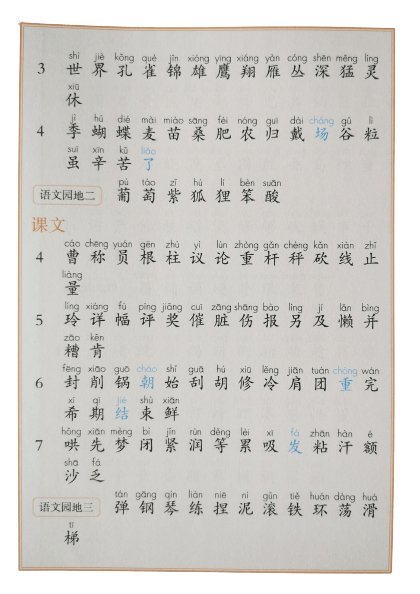 shì jiè kǒng què jǐn xióng yīng xiáng yàn cóng shēn měng líng
3 世 界 孔 雀 锦 雄 鹰 翔 雁 丛 深 猛 灵
xiū
休
jì hú dié mài miáo sāng féi nóng guī dài cháng gǔ lì
4 季 蝴 蝶 麦 苗 桑 肥 农 归 戴 场 谷 粒
suī xīn kǔ liǎo
虽 辛 苦 了
pú táo zǐ hú li bèn suān
语文园地二 葡 萄 紫 狐 狸 笨 酸
课文
cáo chēng yuán gēn zhù yì lùn zhòng gǎn chèng kǎn xiàn zhǐ
4 曹 称 员 根 柱 议 论 重 杆 秤 砍 线 止
liàng
量
líng xiáng fú píng jiǎng cuī zāng shāng bào lìng jí lǎn bìng
5 玲 详 幅 评 奖 催 脏 伤 报 另 及 懒 并
zāo kěn
糟 肯
fēng xiāo guō cháo shǐ guā hú xiū lěng jiān tuán chóng wán
6 封 削 锅 朝 始 刮 胡 修 冷 肩 团 重 完
xī qī jié shù xiān
希 期 结 束 鲜
hǒng xiān mèng bì jǐn rùn děng lèi xī fà zhān hàn é
7 哄 先 梦 闭 紧 润 等 累 吸 发 粘 汗 额
shā fá
沙 乏
tán gāng qín liàn niē ní gǔn tiě huán dàng huá
语文园地三 弹 钢 琴 练 捏 泥 滚 铁 环 荡 滑
tī
梯